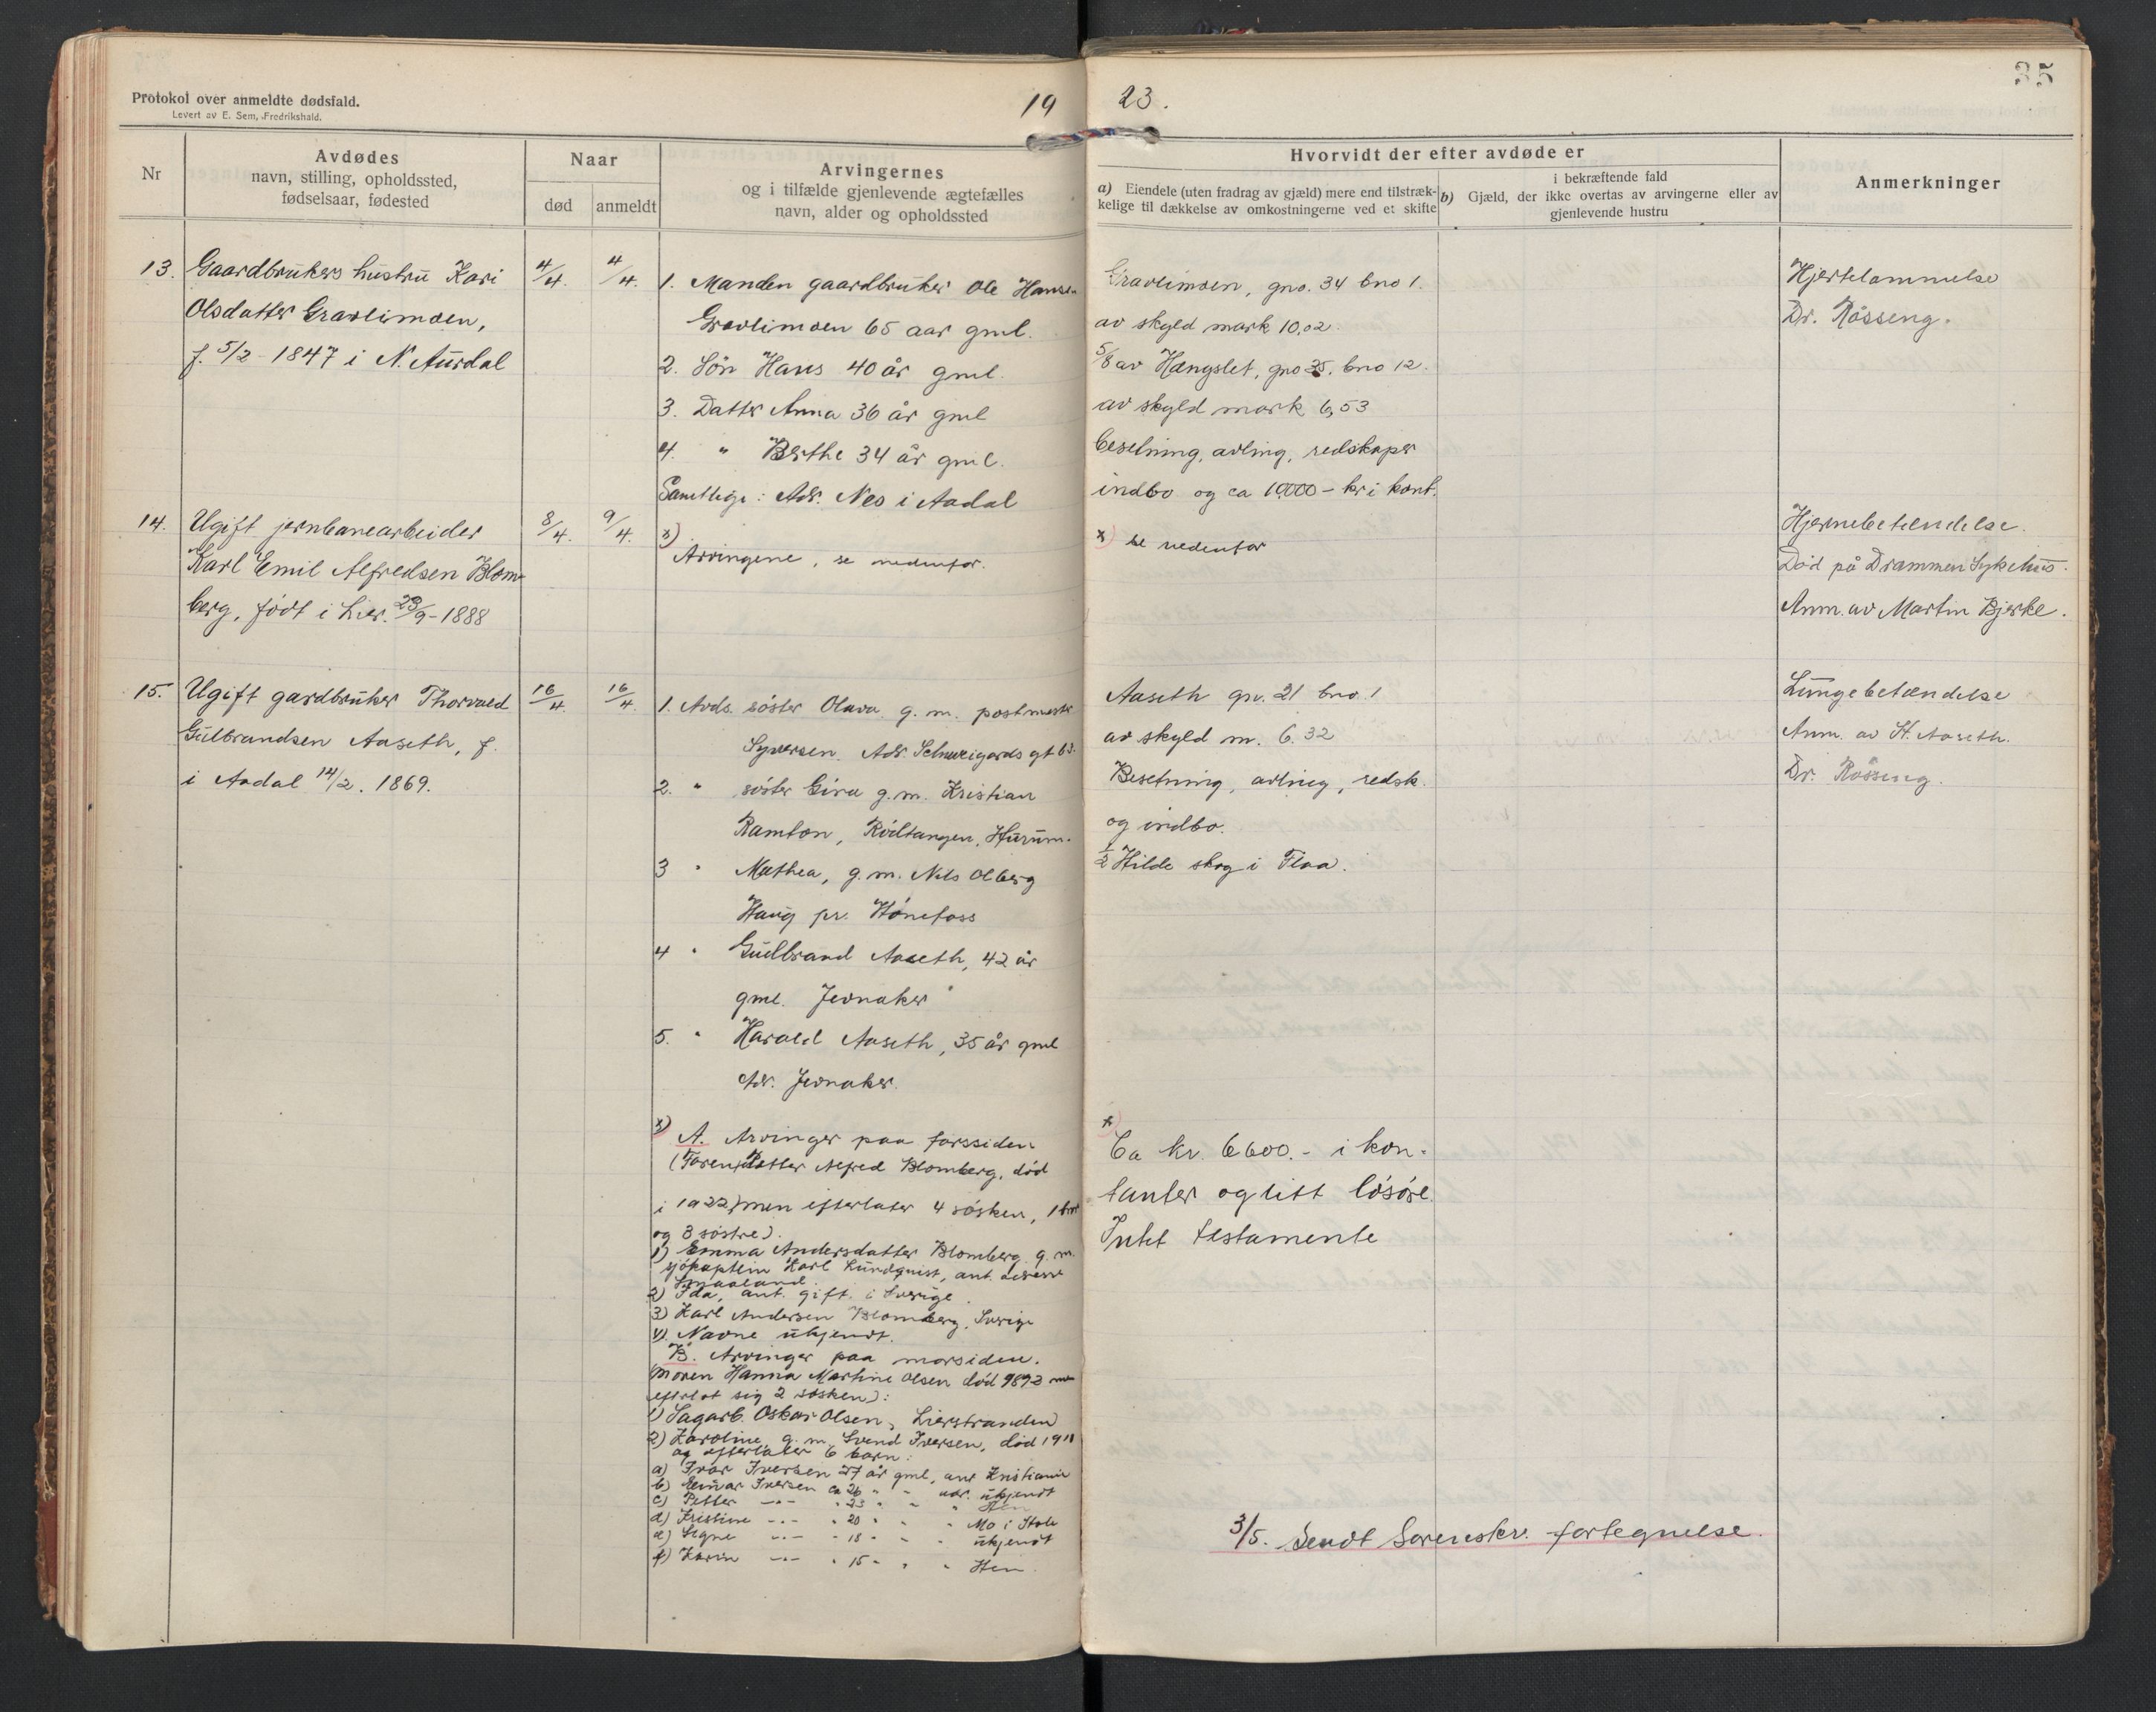 Protokol over anmeldte dødsfald.
Levert av E. Sem, Fredrikshald.
19
Nr
Avdødes
navn, stilling, opholdssted,
fødselsaar, fødested
Naar
død
anmeldt
Arvingernes
og i tilfælde gjenlevende ægtefælles
navn, alder og opholdssted
13.
Gaardbrukers hustru Kari
Olsdatter Gravlimoen,
f. 5/2 - 1847 i N. Aurdal
4/4.
4/4.
1. Manden gaardbruker Ole Hansen
Gravlimoen 65 aar gml.
2. Sön Hans 40 år gml.
3. Datter Anna 36 år gml
4. " Berthe 34 år gml.
Samtlige: Adr. Nes i Aadal
14.
Ugift jernbanearbeider
Karl Emil Alfredsen Blom-
berg, født i Lier. 23/9-1888
8/4.
9/4.
x)
Arvingene, se nedenfor.
15.
Ugift gardbruker Thorvald
Gulbrandsen Aaseth, f.
i Aadal 14/2. 1869.
16/4.
16/4.
1. Avds. söster Olava g. m. postmester
Syversen. Adr. Schweigards gt 63.
2. " söster Gira g. m. Kristian
Ramton, Rödtangen, Hurum.
3 " Mathea, g. m. Nils Olberg
Haug pr. Hönefoss
4 " Gudbrand Aaseth, 42 år
gml. Jevnaker
5. " Harald Aaseth, 35 år gml
Adr. Jevnaker.
x) A. Arvinger paa farssiden
(Faren, Petter Alfred Blomberg, död
i 1922, men efterlater 4 sösken, 1 bror
og 3 söstre).
1) Emma Andersdatter Blomberg g. m.
sjökaptein Karl Lundquist, ant. adresse
Smaaland.
2) Ida, ant. gift i Sverige.
3) Karl Andersen Blomberg, Sverige
4). Navne ukjendt.
B. Arvinger paa morsiden.
Moren Hanna Martine Olsen död 1892 men
efterlot sig 2 sösken):
1) Sagarb. Oskar Olsen, Lierstranden
2) Karoline g. m. Svend Iversen, död 1918
og efterlater 6 barn:
a) Ivar Iversen 27 år gml, ant Kristiania
b) Einar Iversen ca 26 " " adr. ukjendt
c) Petter -"- " 23 " " " Hen
d) Kristine -"- " 20 " " " Mo i Stole
e) Signe -"- " 18 " " " ukjendt
f) Karin -"- " 15 " " " Hen.
23.
35
Hvorvidt der efter avdøde er
a) Eiendele (uten fradrag av gjæld) mere end tilstræk-
kelige til dækkelse av omkostningerne ved et skifte
i bekræftende fald
b) Gjæld, der ikke overtas av arvingerne eller av
gjenlevende hustru
Anmerkninger
Gravlimoen, gno. 34 bno 1.
av skyld mark 10,02.
5/8 av Hængslet, gno 25. bno 12.
av skyld mark 6,53
Besetning, avling, redskaper
indbo og ca 10000 - kr i kont.
Hjertelammelse
Dr. Rösseng.
x) se nedenfor
Hjernebetændelse.
Död på Drammen Sykehus.
Anm. av Martin Bjerke.
Aaseth gn. 21 bno. 1
av skyld m. 6.32
Besetning, avling, redsk.
og indbo.
1/2 Hilde skog i Flaa.
Lungebetændelse
Anm. av H. Aaseth.
Dr. Rösseng.
x)
Ca kr. 6600.- i kon-
tanter og litt lösöre.
Intet testamente
3/5. Sendt Sorenskr. fortegnelse.